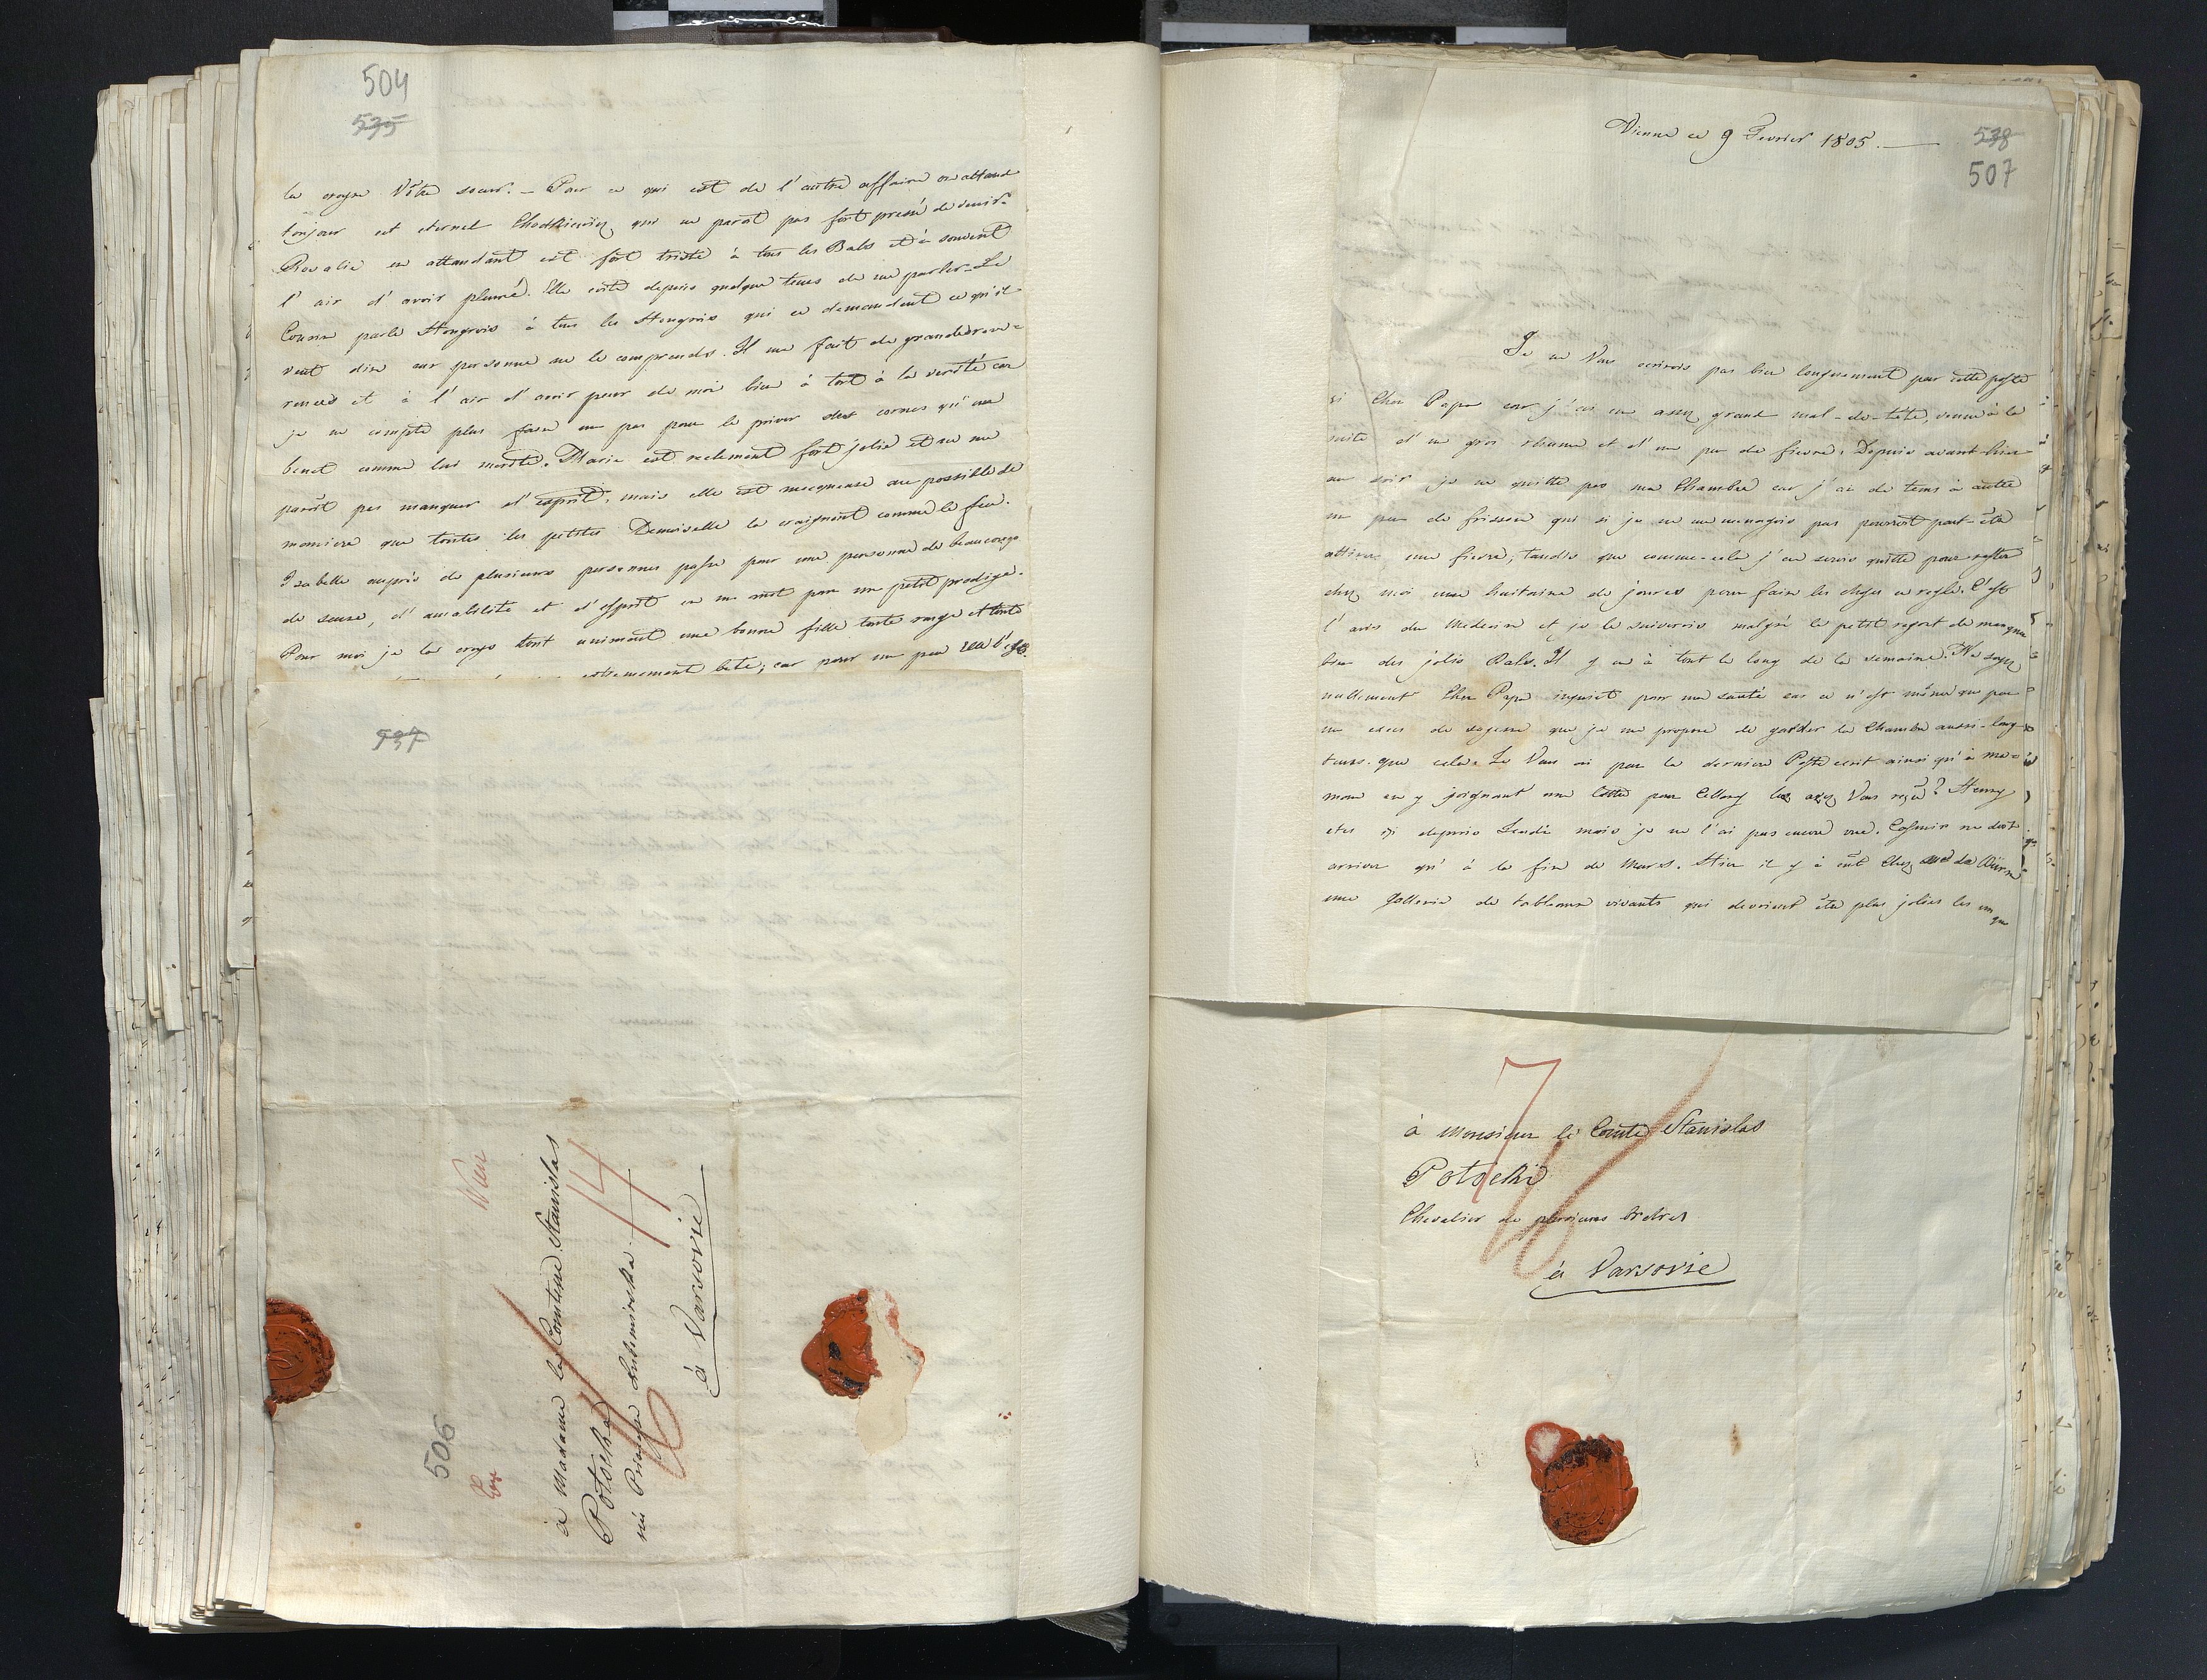 504
535
la croyre Vôtre soeur. – Pour ce qui est de l'autre affaire on attand
toujour cet eternel Chodkiewicz, qui ne parait pas fort pressé de venir.
Rosalie en attandant est fort triste à tous les Bals et à souvent
l'air d'avoir pleuré. Elle évite depuis quelque tems de me parler. Le
Cousin parle Hongrois à tous les Hongrois qui se demandent ce qu'il
veut dire car personne ne le comprends. Il me fait de grandes reve=
rences et à l'air d'avoir peur de moi bien à tort à la verité car
je ne compte plus faire un pas pour le priver des cornes qu'un
benet comme lui merite. Marie est reelement fort jolie et ne me
parôit pas manquer d'esprit, mais elle est mocqueuse au possible de
maniere que toutes les petites Demoiselle la craignent comme le feu.
Isabelle auprès de plusieurs personnes passe pour une personne de beaucoup
de sense, d'amabilité et d'esprit en un mot pour un petit prodige.
Pour moi je la croys tout uniment une bonne fille toute rouge et toute
extremement bete; car pour un peu
537
Wien
à Madame la Comtesse Stanislas
Potocka
née Princesse Lubomirska
à Varsovie
14
16
506
Vienne ce 9 Fevrier 1805.
538
507
Je ne Vous ecrirois pas bien longuement par cette poste
ci Cher Papa car j'ai un assez grand mal-de-tête, venu à la
suite d'un gros rhume et d'un peu de fievre. Depuis avant-hier
au soir je ne quitte pas ma Chambre car j'ai de tems à autre
un peu de frisson qui si je ne me menagois pas pourroit peut-être
attirer une fievre, tandis que comme-cela j'en serois quitte pour rester
chez moi une huitaine de joures pour faire les choses en regle. C'est
l'avis du Medecin et je le suiverois malgré le petit regret de manquer
bien des jolis Bals. Il y en à tout le long de la semaine. Ne soyez
nullement Cher Papa inquiet pour ma santé car ce n'est même que par
un exces de sagesse que je me propose de garder la Chambre aussi-long-
tems que cela. Je Vous ai par la derniere Poste ecrit ainsi qu'à ma=
man en y joignant une lettre pour les avez Vous reçu? Henry
est ici depuis Jeudi mais je ne l'ai pas encore vue. Casimir ne doit
arriver qu'à la fin de Mars. Hier il y à eût chez
une Gallerie de tableaux vivants qui devoient être plus jolies les un
que
7
16
à Monsieur le Comte Stanislas
Potocki
Chevalier de plusieurs Ordres
à Varsovie